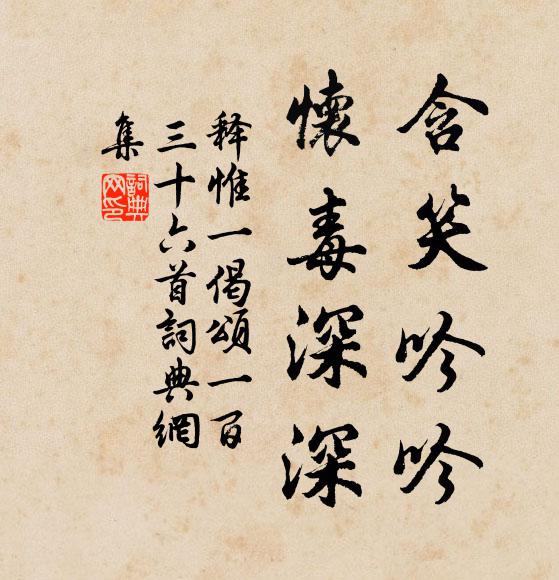 含笑吟吟
懷毒深深
释惟一偈頌一百
三十六首詞典網
集
詞典
网印